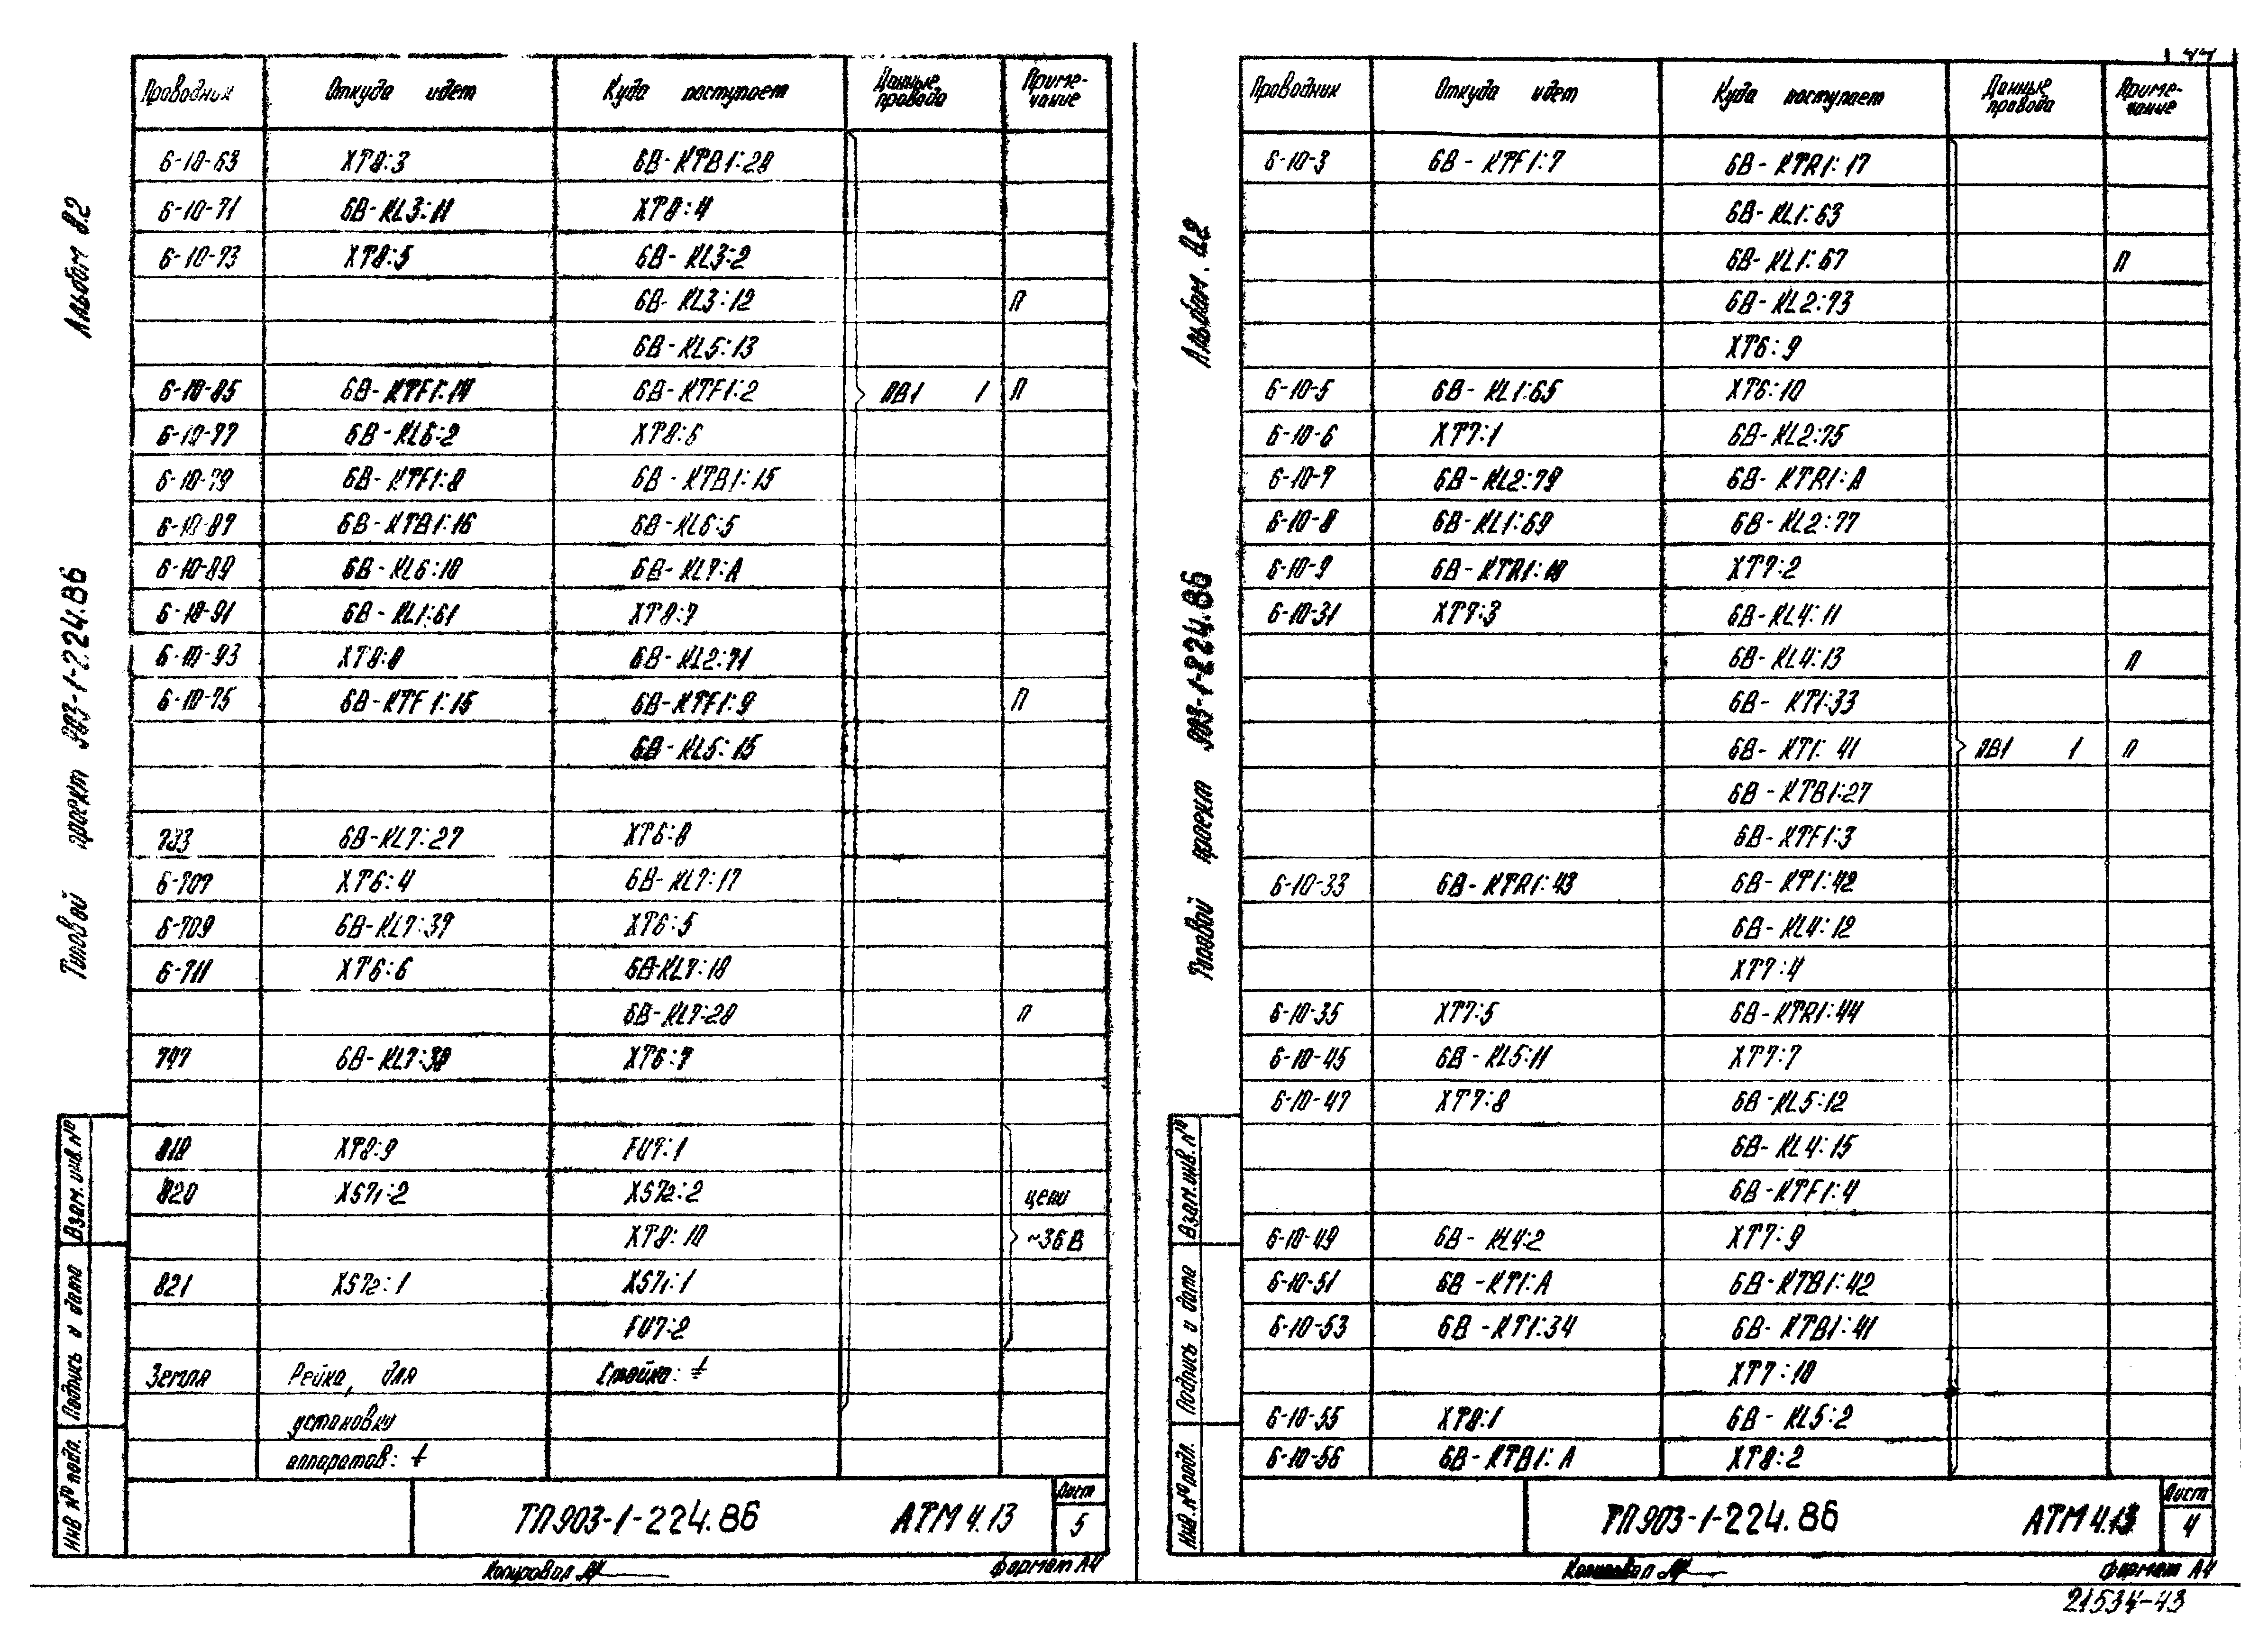 Проводник Откуда идет Куда поступает Данные провода Приме-чание
6-10-63 XT8:3 6В-КТВ1:28
6-10-71 6В-KL3:11 XT8:4
6-10-73 XT8:5 6В-KL3:2
6В-KL3:12 П
6В-KL5:13
6-10-85 6В-KTF1:14 6В-KTF1:2 ПВ1 1 П
6-10-77 6В-KL6:2 XT8:6
6-10-79 6В-KTF1:8 6В-КТВ1:15
6-10-87 6В-КТВ1:16 6В-KL6:5
6-10-89 6В-KL6:10 6В-KL7:А
6-10-91 6В-KL1:61 XT8:7
6-10-93 XT8:8 6В-KL2:71
6-10-75 6В-KTF1:15 6В-KTF1:9 П
6В-KL5:15
733 6В-KL7:27 XT6:8
6-707 XT6:4 6В-KL7:17
6-709 6В-KL7:37 XT6:5
6-711 XT6:6 6В-KL7:18
6В-KL7:28 П
747 6В-KL7:38 XT6:7
819 XT8:9 FU7:1
820 XS71:2 XS72:2 цепи
XT8:10 ~36В
821 XS72:1 XS71:1
FU7:2
Земля Рейка, для Стойка: ⏚
установки
аппаратов: ⏚
ТП903-1-224.86 АТМ4.13 Лист 5
Копировал Формат А4
Альбом 8.2
Типовой проект 903-1-224.86
Взам.инв.№
Подпись и дата
Инв № подл.
44
Проводник Откуда идет Куда поступает Данные провода Приме-чание
6-10-3 6В-KTF1:7 6В-KTR1:17
6В-KL1:63
6В-KL1:67 П
6В-KL2:73
XT6:9
6-10-5 6В-KL1:65 XT6:10
6-10-6 XT7:1 6В-KL2:75
6-10-7 6В-KL2:79 6В-KTR1:А
6-10-8 6В-KL1:69 6В-KL2:77
6-10-9 6В-KTR1:18 XT7:2
6-10-31 XT7:3 6В-KL4:11
6В-KL4:13 П
6В-KT1:33
6В-KT1:41 ПВ1 1 П
6В-КТВ1:27
6В-KTF1:3
6-10-33 6В-KTR1:43 6В-KT1:42
6В-KL4:12
XT7:4
6-10-35 XT7:5 6В-KTR1:44
6-10-45 6В-KL5:11 XT7:7
6-10-47 XT7:8 6В-KL5:12
6В-KL4:15
6В-KTF1:4
6-10-49 6В-KL4:2 XT7:9
6-10-51 6В-KT1:А 6В-КТВ1:42
6-10-53 6В-KT1:34 6В-КТВ1:41
XT7:10
6-10-55 XT8:1 6В-KL5:2
6-10-56 6В-КТВ1:А XT8:2
ТП903-1-224.86 АТМ4.13 Лист 4
Копировал Формат А4
21534-43
Альбом 8.2
Типовой проект 903-1-224.86
Взам.инв.№
Подпись и дата
Инв.№ подл.